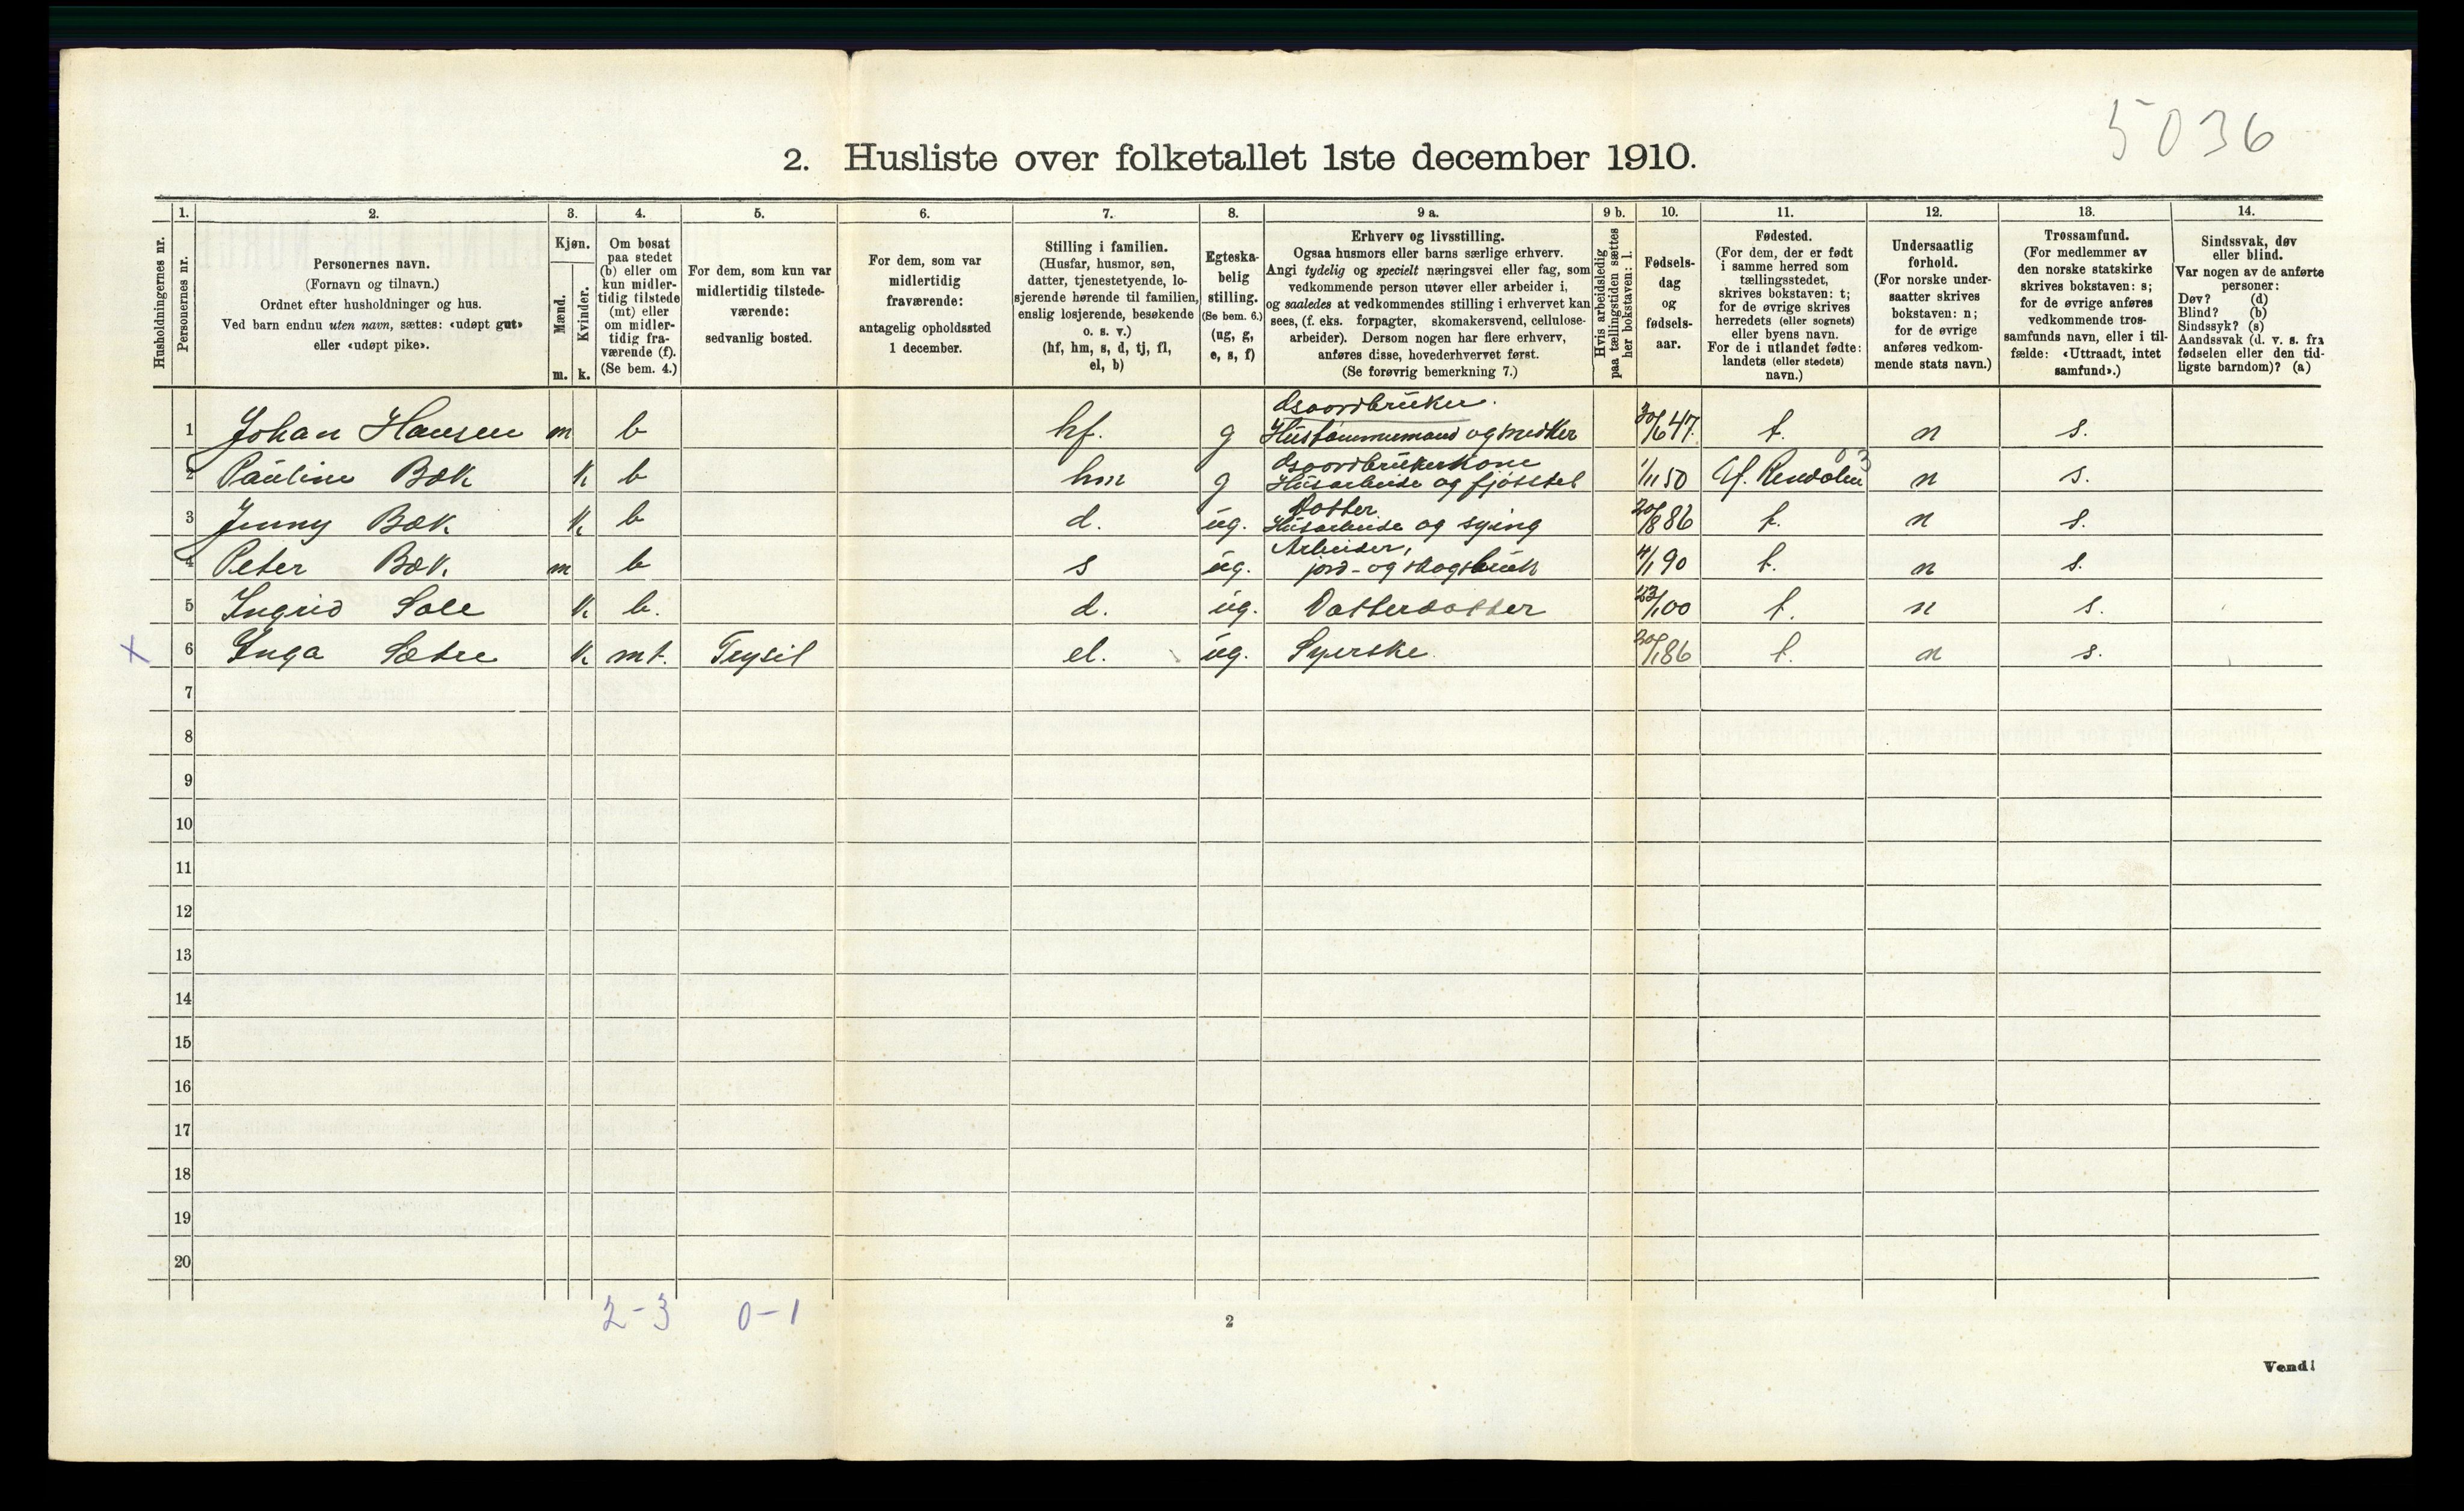 5036
2. Husliste over folketallet 1ste december 1910.
Husholdningernes nr.
1.
Personernes nr.
2.
Personernes navn.
(Fornavn og tilnavn.)
Ordnet efter husholdninger og hus.
Ved barn endnu uten navn, sættes: «udøpt gut»
eller «udøpt pike».
3.
Kjøn.
Mænd.
Kvinder.
m.
k.
4.
Om bosat
paa stedet
(b) eller om
kun midler-
tidig tilstede
(mt) eller
om midler-
tidig fra-
værende (f).
(Se bem. 4.)
5.
For dem, som kun var
midlertidig tilstede-
værende:
sedvanlig bosted.
6.
For dem, som var
midlertidig
fraværende:
antagelig opholdssted
1 december.
7.
Stilling i familien.
(Husfar, husmor, søn,
datter, tjenestetyende, lo-
sjerende hørende til familien,
enslig losjerende, besøkende
o. s. v.)
(hf, hm, s, d, tj, fl,
el, b)
8.
Egteska-
belig
stilling.
(Se bem. 6.)
(ug, g,
e, s, f)
9 a.
Erhverv og livsstilling.
Ogsaa husmors eller barns særlige erhverv.
Angi tydelig og specielt næringsvei eller fag, som
vedkommende person utøver eller arbeider i,
og saaledes at vedkommendes stilling i erhvervet kan
sees, (f. eks. forpagter, skomakersvend, cellulose-
arbeider). Dersom nogen har flere erhverv,
anføres disse, hovederhvervet først.
(Se forøvrig bemerkning 7.)
9 b.
Hvis arbeidsledig
paa tællingstiden sættes
her bokstaven: l.
10.
Fødsels-
dag
og
fødsels-
aar.
11.
Fødested.
(For dem, der er født
i samme herred som
tællingsstedet,
skrives bokstaven: t;
for de øvrige skrives
herredets (eller sognets)
eller byens navn.
For de i utlandet fødte:
landets (eller stedets)
navn.)
12.
Undersaatlig
forhold.
(For norske under-
saatter skrives
bokstaven: n;
for de øvrige
anføres vedkom-
mende stats navn.)
13.
Trossamfund.
(For medlemmer av
den norske statskirke
skrives bokstaven: s;
for de øvrige anføres
vedkommende tros-
samfunds navn, eller i til-
fælde: «Uttraadt, intet
samfund».)
14.
Sindssvak, døv
eller blind.
Var nogen av de anførte
personer:
Døv? (d)
Blind? (b)
Sindssyk? (s)
Aandssvak (d. v. s. fra
fødselen eller den tid-
ligste barndom)? (a)
1 Johan Hansen m b hf. g Gaardbruker. Hustømmermand og snedker 30/6 47. t. n s.
2 Pauline Bæk k b hm g Gaardbrukerkone Husarbeide og fjøsstel 1/11 50 Rendalen 03 n s.
3 Jenny Bæk k b d. ug. Datter Husarbeide og sying 20/8 86 t. n s.
4 Peter Bæk m b s ug. Arbeider, jord- og skogsbruk 4/1 90 t. n s.
5 Ingrid k b. d. ug. Datterdatter 23/1 00 t. n s.
x 6 Inga Sætre k mt. Trysil el. ug. Syerske. 20/1 86 t. n s.
7
8
9
10
11
12
13
14
15
16
17
18
19
20
2-3 0-1
2
Vend!